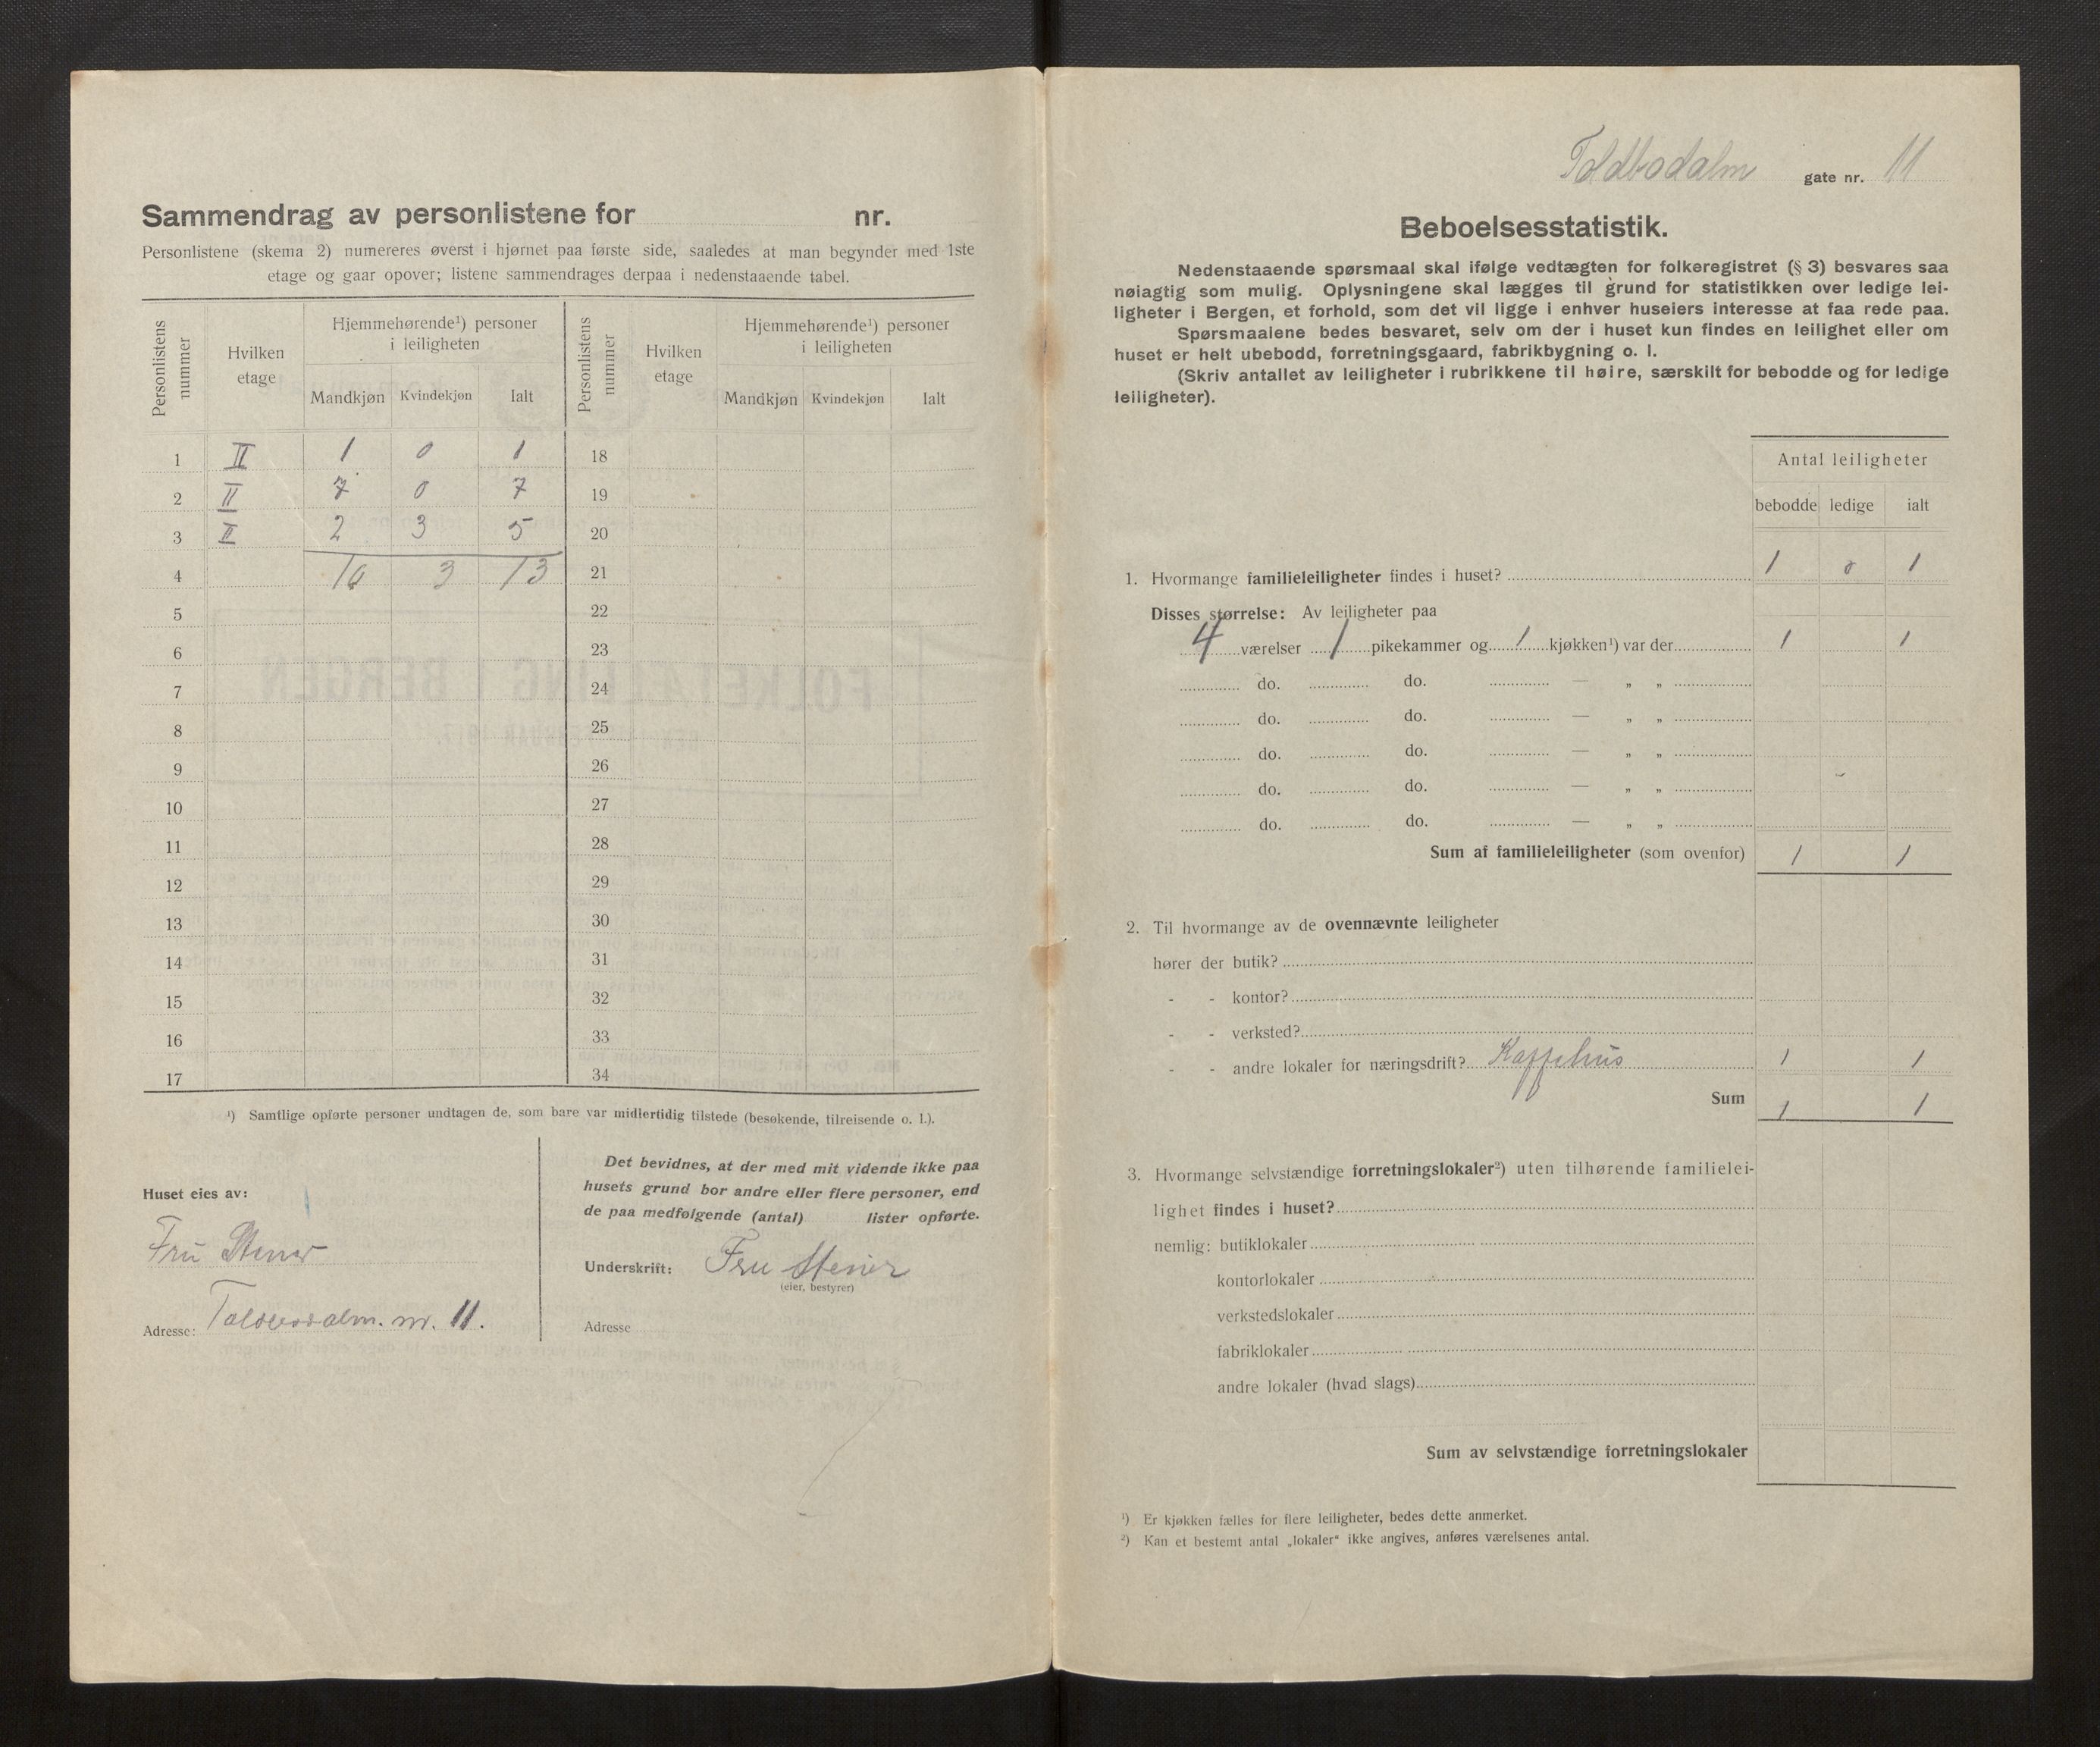 Sammendrag av personlistene for nr.
Personlistene (skema 2) numereres øverst i hjørnet paa første side, saaledes at man begynder med 1ste
etage og gaar opover; listene sammendrages derpaa i nedenstaaende tabel.
Personlistens nummer
Hvilken etage
Hjemmehørende¹) personer i leiligheten
Mandkjøn Kvindekjøn Ialt
Personlistens nummer
Hvilken etage
Hjemmehørende¹) personer i leiligheten
Mandkjøn Kvindekjøn Ialt
1 II 1 0 1 18
2 II 7 0 7 19
3 II 2 3 5 20
4 10 3 13 21
5 22
6 23
7 24
8 25
9 26
10 27
11 28
12 29
13 30
14 31
15 32
16 33
17 34
¹) Samtlige opførte personer undtagen de, som bare var midlertidig tilstede (besøkende, tilreisende o. l.).
Huset eies av:
Fru Stener
Adresse: Toldbodalm. nr. 11.
Det bevidnes, at der med mit vidende ikke paa
husets grund bor andre eller flere personer, end
de paa medfølgende (antal) lister opførte.
Underskrift: Fru Stener
(eier, bestyrer)
Adresse
Toldbodalm gate nr. 11
Beboelsesstatistik.
Nedenstaaende spørsmaal skal ifølge vedtægten for folkeregistret (§ 3) besvares saa
nøiagtig som mulig. Oplysningene skal lægges til grund for statistikken over ledige lei-
ligheter i Bergen, et forhold, som det vil ligge i enhver huseiers interesse at faa rede paa.
Spørsmaalene bedes besvaret, selv om der i huset kun findes en leilighet eller om
huset er helt ubebodd, forretningsgaard, fabrikbygning o. l.
(Skriv antallet av leiligheter i rubrikkene til høire, særskilt for bebodde og for ledige
leiligheter).
Antal leiligheter
bebodde ledige ialt
1. Hvormange familieleiligheter findes i huset? 1 0 1
Disses størrelse: Av leiligheter paa
4 værelser 1 pikekammer og 1 kjøkken¹) var der 1 1
do. do. — „ „
do. do. — „ „
do. do. — „ „
do. do. — „ „
do. do. — „ „
Sum af familieleiligheter (som ovenfor) 1 1
2. Til hvormange av de ovennævnte leiligheter
hører der butik?
- - kontor?
- - verksted?
- - andre lokaler for næringsdrift? Kaffehus 1 1
Sum 1 1
3. Hvormange selvstændige forretningslokaler²) uten tilhørende familielei-
lighet findes i huset?
nemlig: butiklokaler
kontorlokaler
verkstedslokaler
fabriklokaler
andre lokaler (hvad slags)
Sum av selvstændige forretningslokaler
¹) Er kjøkken fælles for flere leiligheter, bedes dette anmerket.
²) Kan et bestemt antal „lokaler“ ikke angives, anføres værelsenes antal.